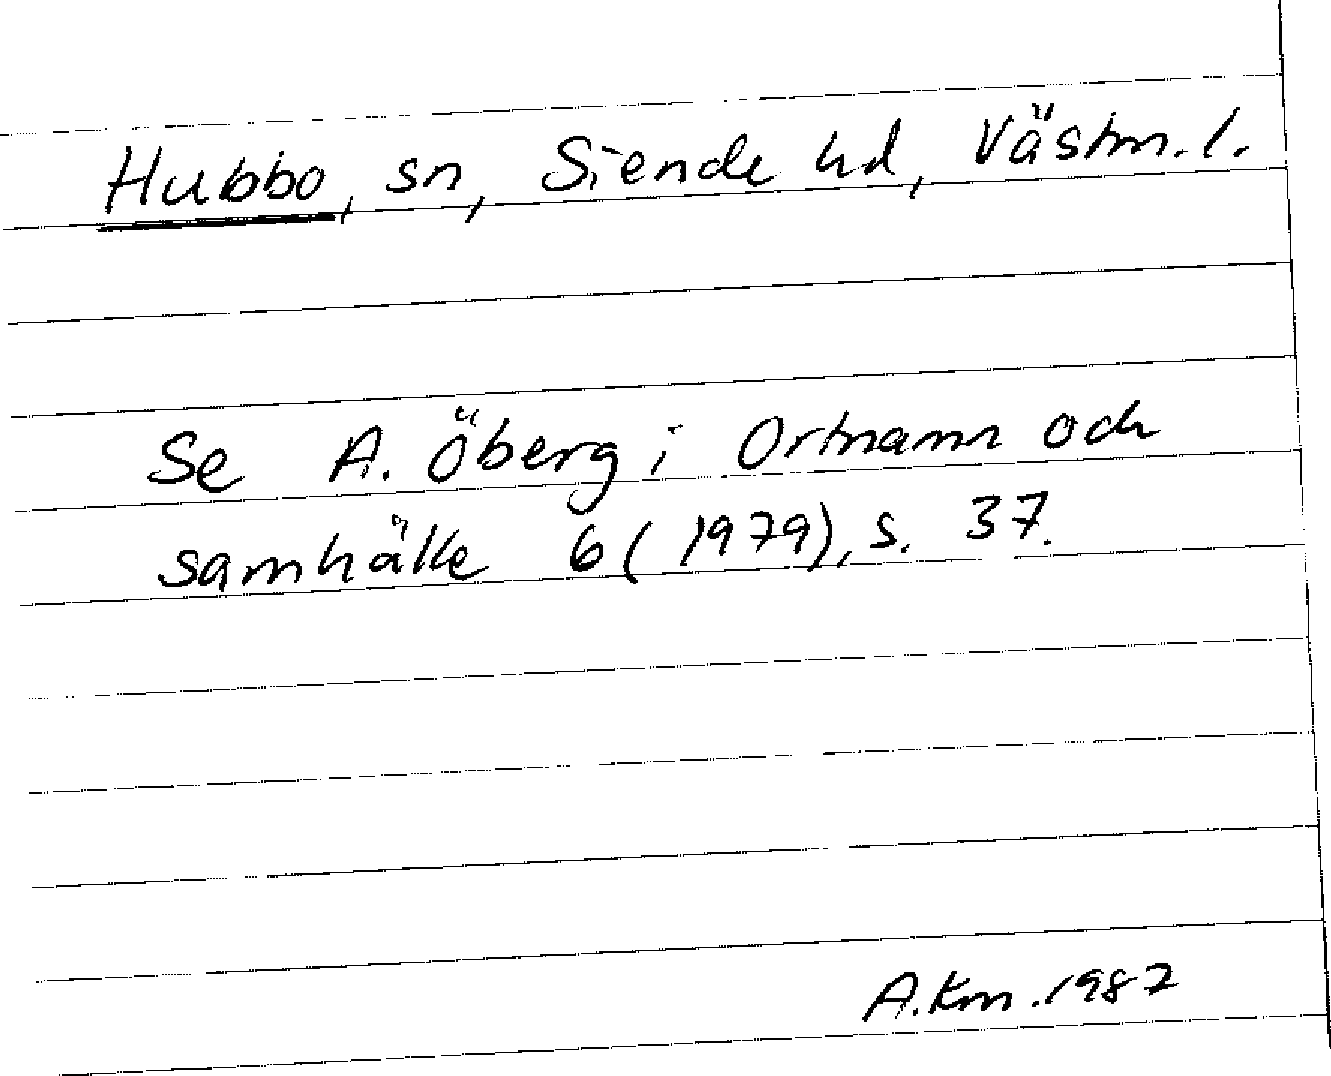 Hubbo, sn, Siende hd, Västm. l.
Se A. Öberg i Ortnamn och
samhälle 6 (1979), s. 37.
A.Km. 1987